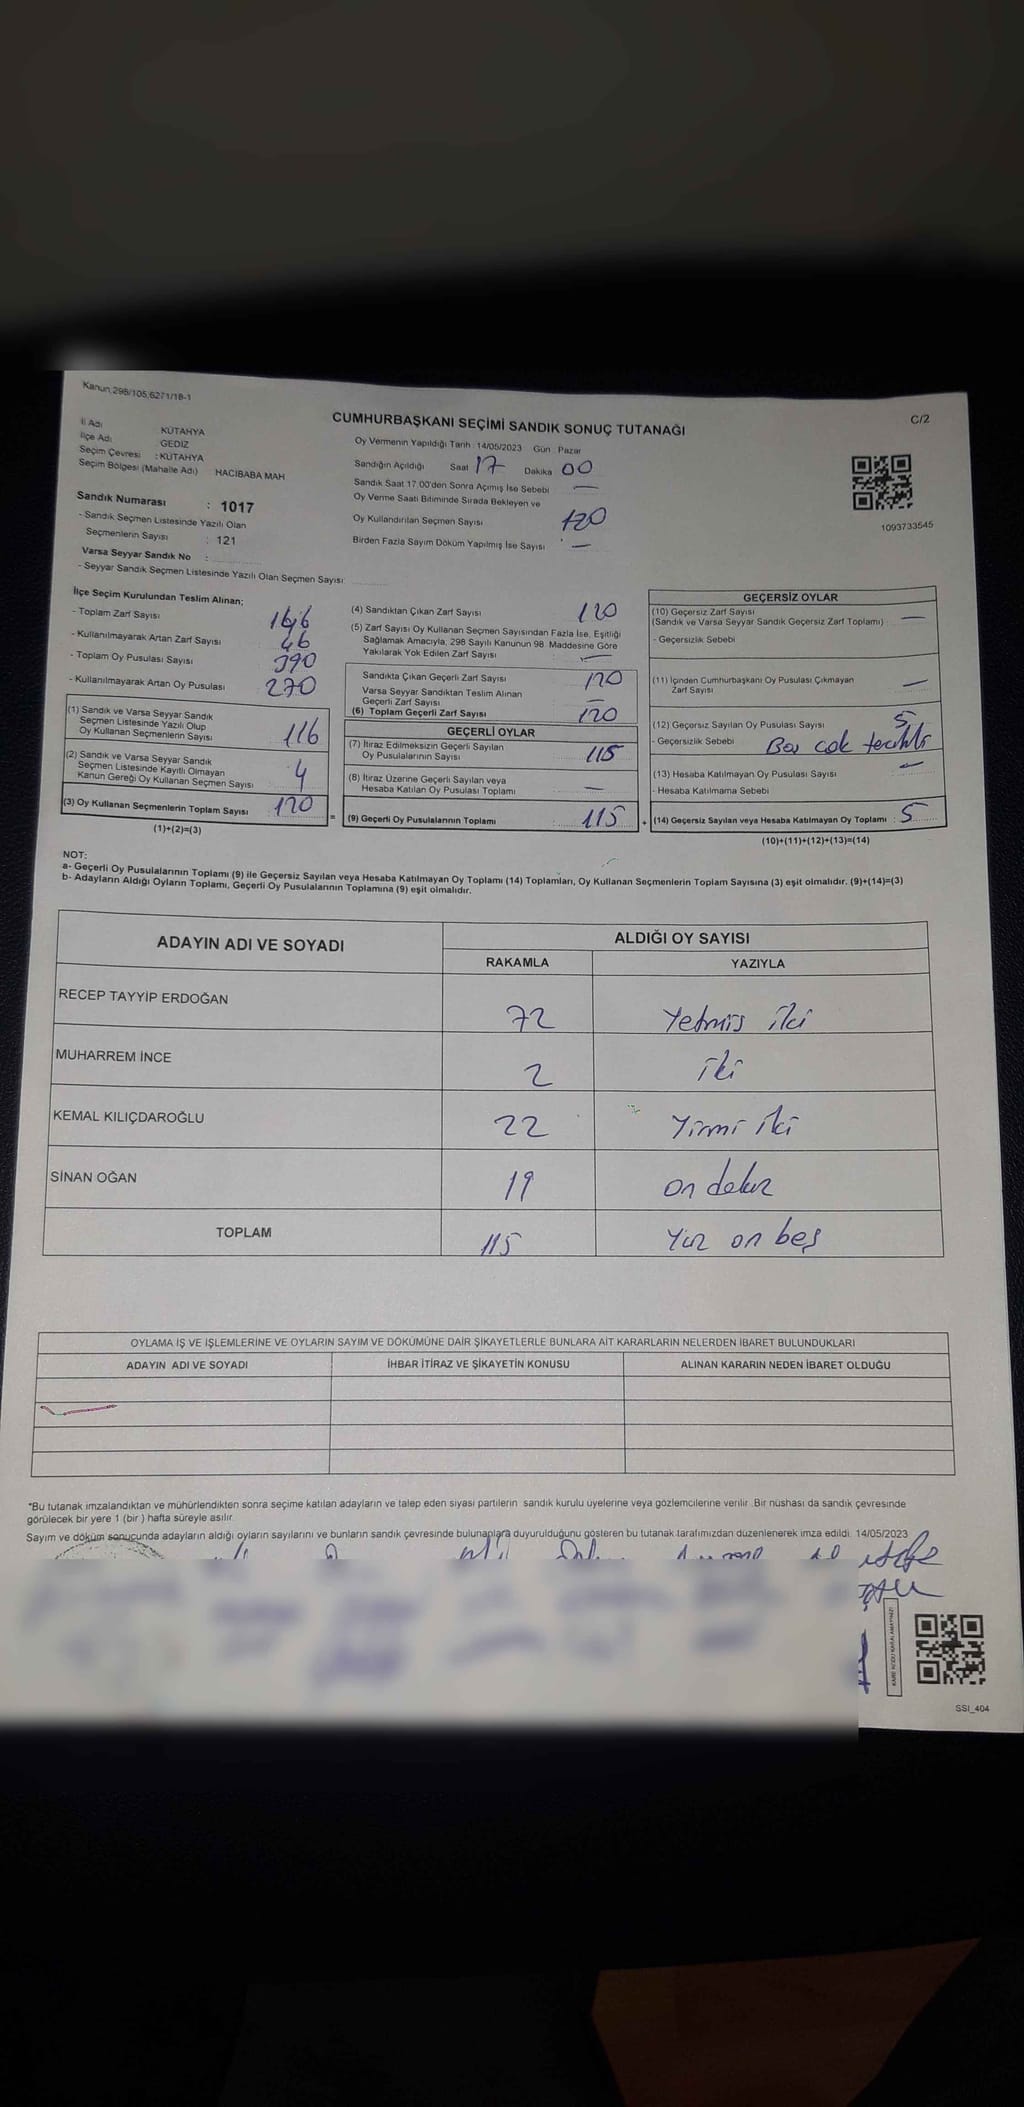 Kanun 298/105,6271/18-1
C/2
CUMHURBAŞKANI SEÇİMİ SANDIK SONUÇ TUTANAĞI
İl Adı KÜTAHYA
İlçe Adı GEDİZ
Seçim Çevresi : KÜTAHYA
Seçim Bölgesi (Mahalle Adı) HACIBABA MAH
Sandık Numarası : 1017
- Sandık Seçmen Listesinde Yazılı Olan
Seçmenlerin Sayısı : 121
Varsa Seyyar Sandık No :
- Seyyar Sandık Seçmen Listesinde Yazılı Olan Seçmen Sayısı:
Oy Vermenin Yapıldığı Tarih 14/05/2023 Gün Pazar
Sandığın Açıldığı Saat 17 Dakika 00
Sandık Saat 17.00'den Sonra Açımış İse Sebebi —
Oy Verme Saati Bitiminde Sırada Bekleyen ve
Oy Kullandırılan Seçmen Sayısı 120
Birden Fazla Sayım Döküm Yapılmış İse Sayısı —
1093733545
İlçe Seçim Kurulundan Teslim Alınan;
- Toplam Zarf Sayısı 166
- Kullanılmayarak Artan Zarf Sayısı 46
- Toplam Oy Pusulası Sayısı 390
- Kullanılmayarak Artan Oy Pusulası 270
(1) Sandık ve Varsa Seyyar Sandık
Seçmen Listesinde Yazılı Olup
Oy Kullanan Seçmenlerin Sayısı 116
(2) Sandık ve Varsa Seyyar Sandık
Seçmen Listesinde Kayıtlı Olmayan
Kanun Gereği Oy Kullanan Seçmen Sayısı 4
(3) Oy Kullanan Seçmenlerin Toplam Sayısı 120
(1)+(2)=(3)
=
(4) Sandıktan Çıkan Zarf Sayısı 120
(5) Zarf Sayısı Oy Kullanan Seçmen Sayısından Fazla İse, Eşitliği
Sağlamak Amacıyla, 298 Sayılı Kanunun 98. Maddesine Göre
Yakılarak Yok Edilen Zarf Sayısı —
Sandıkta Çıkan Geçerli Zarf Sayısı 120
Varsa Seyyar Sandıktan Teslim Alınan
Geçerli Zarf Sayısı —
(6) Toplam Geçerli Zarf Sayısı 120
GEÇERLİ OYLAR
(7) İtiraz Edilmeksizin Geçerli Sayılan
Oy Pusulalarının Sayısı 115
(8) İtiraz Üzerine Geçerli Sayılan veya
Hesaba Katılan Oy Pusulası Toplamı —
(9) Geçerli Oy Pusulalarının Toplamı 115
+
GEÇERSİZ OYLAR
(10) Geçersiz Zarf Sayısı
(Sandık ve Varsa Seyyar Sandık Geçersiz Zarf Toplamı) —
- Geçersizlik Sebebi
(11) İçinden Cumhurbaşkanı Oy Pusulası Çıkmayan
Zarf Sayısı —
(12) Geçersiz Sayılan Oy Pusulası Sayısı 5
- Geçersizlik Sebebi
(13) Hesaba Katılmayan Oy Pusulası Sayısı —
- Hesaba Katılmama Sebebi
(14) Geçersiz Sayılan veya Hesaba Katılmayan Oy Toplamı : 5
(10)+(11)+(12)+(13)=(14)
NOT:
a- Geçerli Oy Pusulalarının Toplamı (9) ile Geçersiz Sayılan veya Hesaba Katılmayan Oy Toplamı (14) Toplamları, Oy Kullanan Seçmenlerin Toplam Sayısına (3) eşit olmalıdır. (9)+(14)=(3)
b- Adayların Aldığı Oyların Toplamı, Geçerli Oy Pusulalarının Toplamına (9) eşit olmalıdır.
ADAYIN ADI VE SOYADI ALDIĞI OY SAYISI
RAKAMLA YAZIYLA
RECEP TAYYİP ERDOĞAN 72 Yetmiş iki
MUHARREM İNCE 2 iki
KEMAL KILIÇDAROĞLU 22 Yirmi iki
SİNAN OĞAN 19 on dokuz
TOPLAM 115 Yüz on beş
OYLAMA İŞ VE İŞLEMLERİNE VE OYLARIN SAYIM VE DÖKÜMÜNE DAİR ŞİKAYETLERLE BUNLARA AİT KARARLARIN NELERDEN İBARET BULUNDUKLARI
ADAYIN ADI VE SOYADI İHBAR İTİRAZ VE ŞİKAYETİN KONUSU ALINAN KARARIN NEDEN İBARET OLDUĞU
*Bu tutanak imzalandıktan ve mühürlendikten sonra seçime katılan adayların ve talep eden siyasi partilerin sandık kurulu üyelerine veya gözlemcilerine verilir. Bir nüshası da sandık çevresinde
görülecek bir yere 1 (bir) hafta süreyle asılır.
Sayım ve döküm sonucunda adayların aldığı oyların sayılarını ve bunların sandık çevresinde bulunanlara duyurulduğunu gösteren bu tutanak tarafımızdan düzenlenerek imza edildi. 14/05/2023
KARE KODU KARALAMAYINIZ!
SSI_404